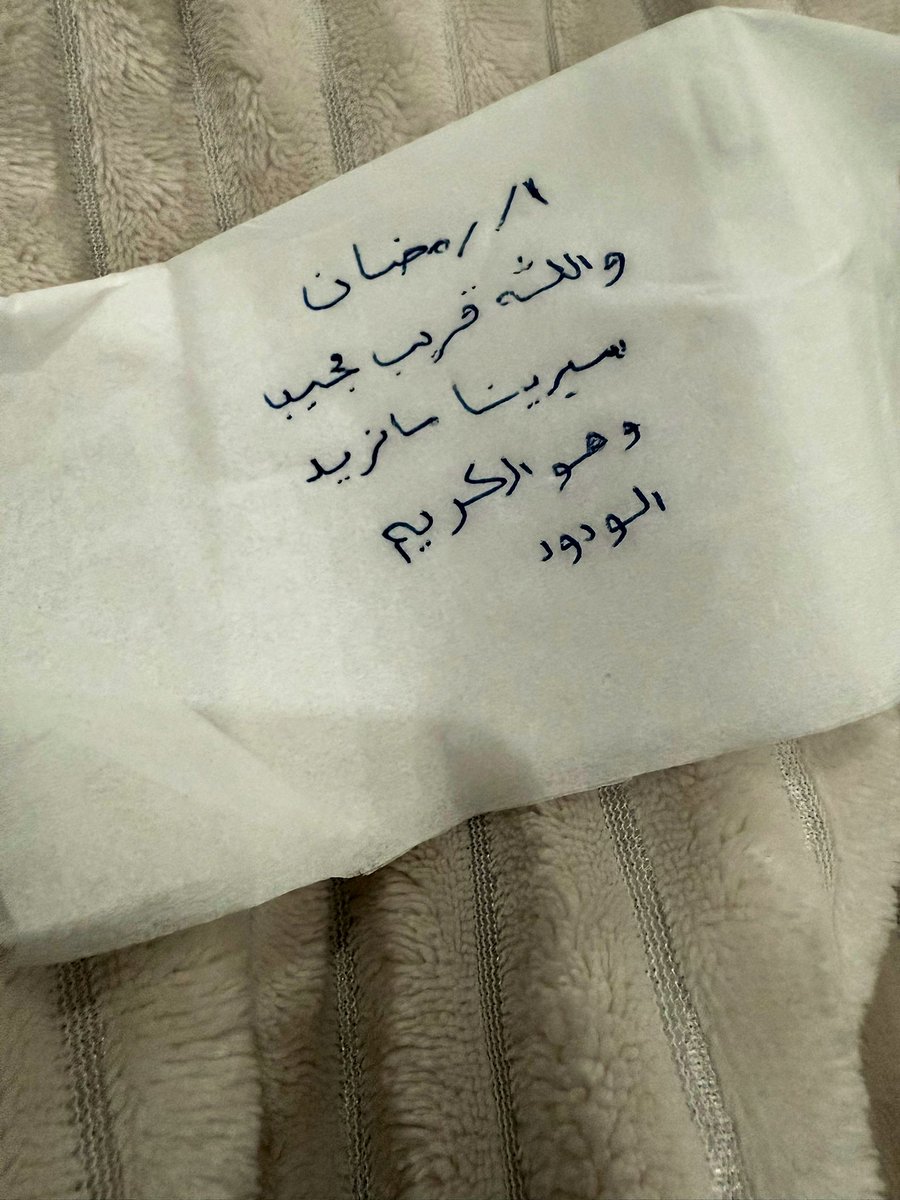 ٨/رمضان
والله قريب مجيب
سيرينا ما نريد
وهو الكريم
الودود